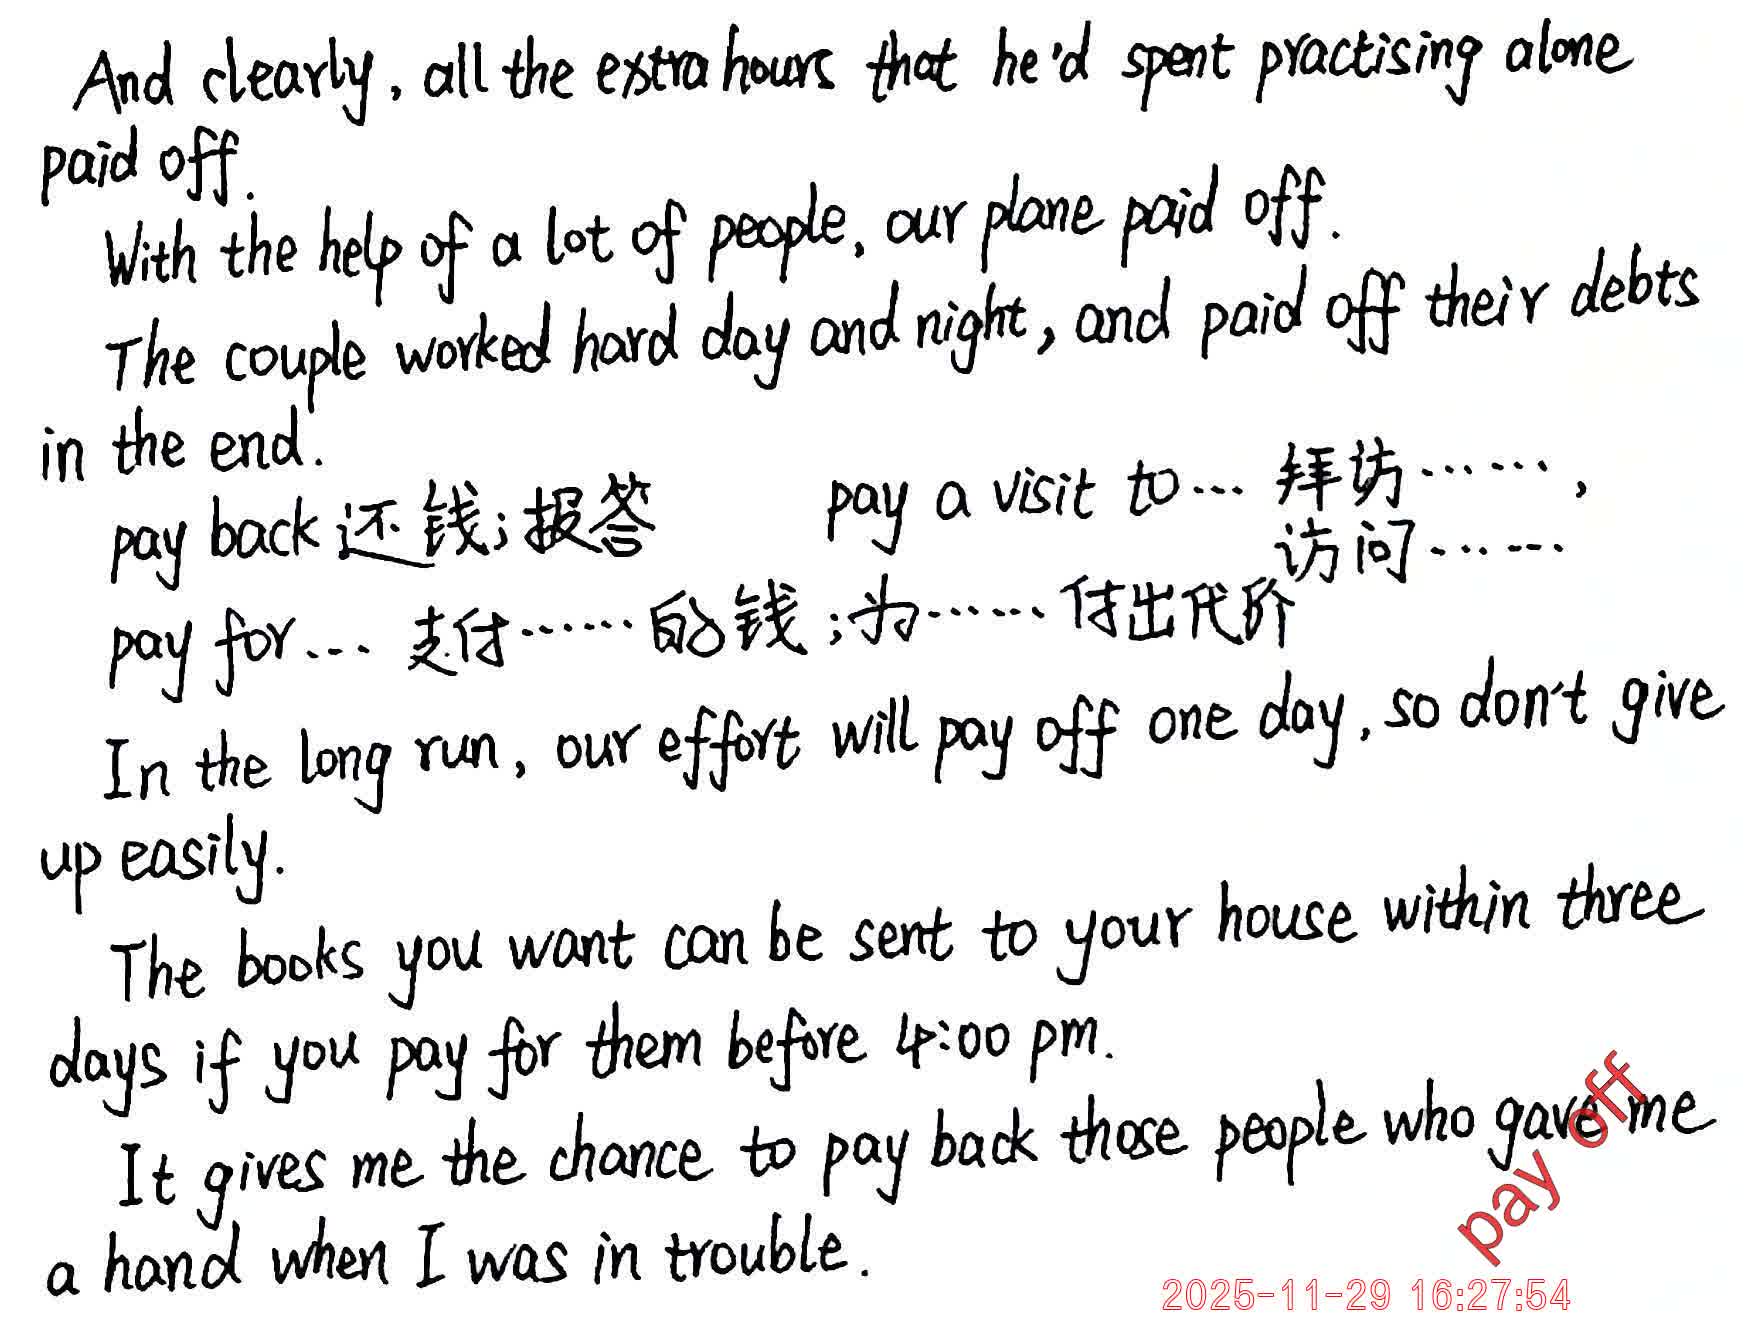 And clearly, all the extra hours that he'd spent practising alone
paid off.
With the help of a lot of people, our plane paid off.
The couple worked hard day and night, and paid off their debts
in the end.
pay back 还钱;报答 pay a visit to... 拜访……,
访问……
pay for... 支付……的钱;为……付出代价
In the long run, our effort will pay off one day, so don't give
up easily.
The books you want can be sent to your house within three
days if you pay for them before 4:00 pm.
It gives me the chance to pay back those people who gave me
a hand when I was in trouble.
pay off
2025-11-29 16:27:54